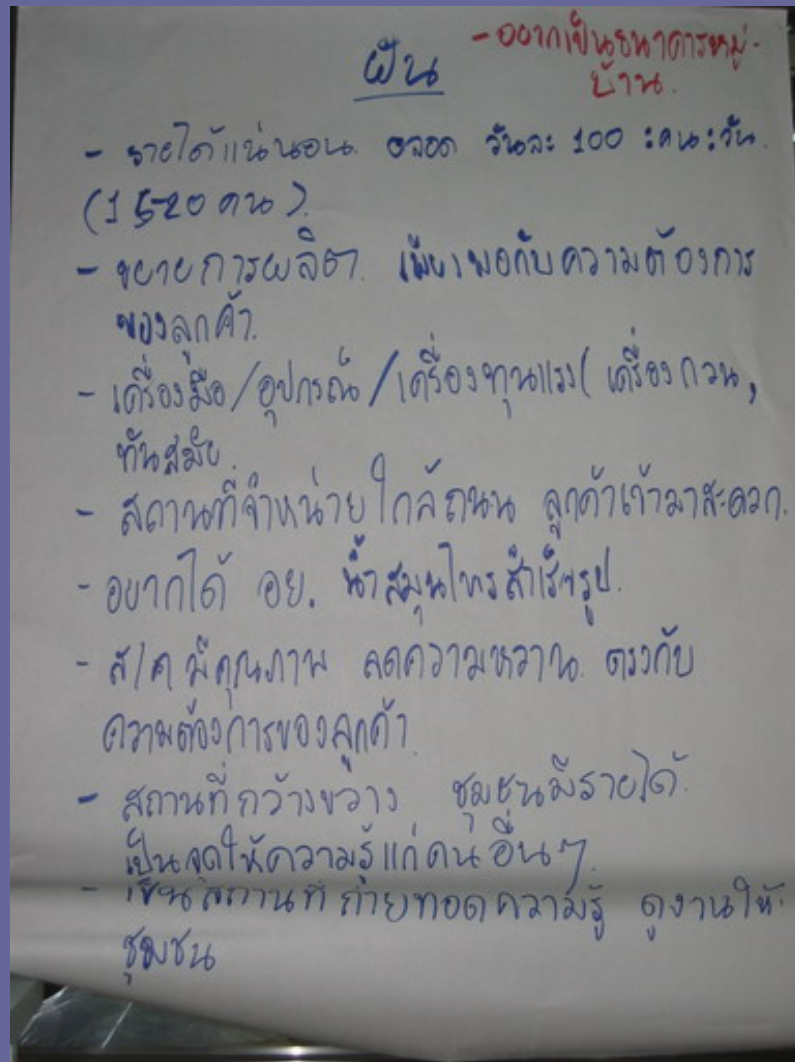 ฝัน
- อยากเป็นธนาคารหมู่-
บ้าน.
- รายได้แน่นอน. ตลอด วันละ 100 :คน:วัน.
(15-20 คน).
- ขยายการผลิต. เพียงพอกับความต้องการ
ของลูกค้า.
- เครื่องมือ/อุปกรณ์/เครื่องทุนแรง( เครื่องกวน,
ทันสมัย.
- สถานที่จำหน่ายใกล้ถนน ลูกค้าเข้ามาสะดวก.
- อยากได้ อย. น้ำสมุนไพรสำเร็จรูป.
- ส/ค มีคุณภาพ ลดความหวาน. ตรงกับ
ความต้องการของลูกค้า.
- สถานที่กว้างขวาง ชุมชนมีรายได้.
เป็นจุดให้ความรู้แก่คนอื่นๆ.
- เป็นสถานที่ถ่ายทอดความรู้ ดูงานให้
ชุมชน